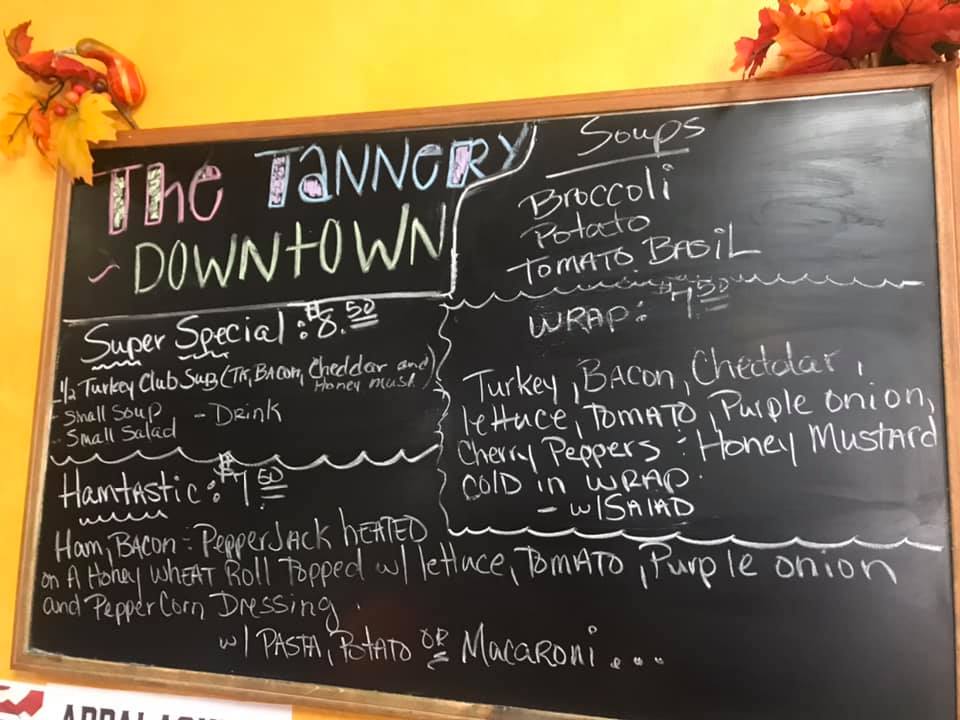 The Tannery
~ Downtown
Soups
Broccoli
Potato
Tomato Basil
Super Special: $8.50
1/2 Turkey Club Sub (TK, Bacon, Cheddar and Honey Must.)
- Small Soup - Drink
- Small Salad
Wrap: $7.50
Turkey, Bacon, Cheddar,
lettuce, Tomato, Purple onion,
Cherry Peppers : Honey Mustard
cold in wrap.
- w/ Salad
Hamtastic: $7.50
Ham, Bacon : Pepper Jack heated
on a Honey Wheat Roll topped w/ lettuce, Tomato, Purple onion
and PepperCorn Dressing.
w/ Pasta, Potato or Macaroni....